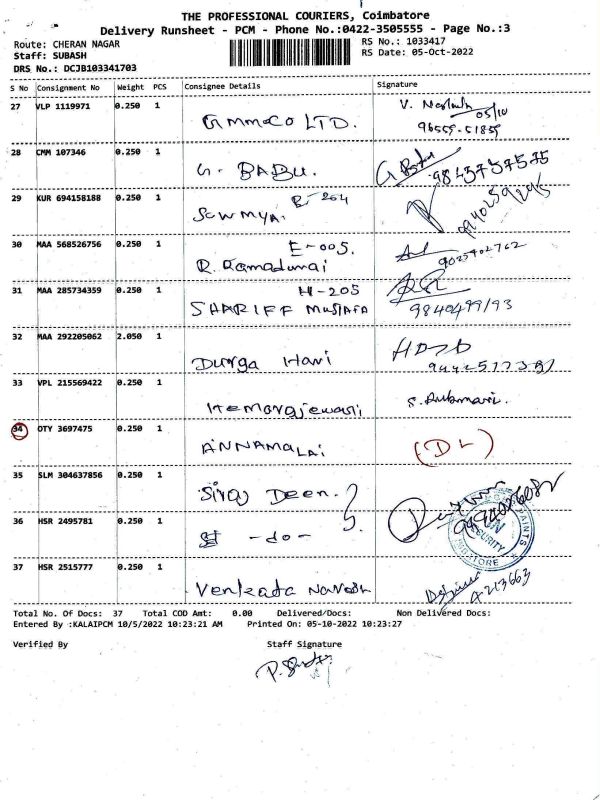 THE PROFESSIONAL COURIERS, Coimbatore
Delivery Runsheet - PCM - Phone No.:0422-3505555 - Page No.:3
Route: CHERAN NAGAR
RS No.: 1033417
Staff: SUBASH
RS Date: 05-Oct-2022
DRS No.: DCJB103341703
S No Consignment No Weight PCS Consignee Details Signature
27 VLP 1119971 0.250 1 GMMCO LTD. V. 05/10
96559-51855
28 CMM 107346 0.250 1 G. BABU. 9843737575
29 KUR 694158188 0.250 1 SOWMYA. B-204
30 MAA 568526756 0.250 1 E-005.
R. Ramadurai 9025902762
31 MAA 285734359 0.250 1 H-205
SHARIFF MUSTAFA 9840499193
32 MAA 292205062 2.050 1 Durga Hari
33 VPL 215569422 0.250 1 S. Rukmani.
34 OTY 3697475 0.250 1 ANNAMALAI (DL)
35 SLM 304637856 0.250 1 Siraj Deen.
36 HSR 2495781 0.250 1 -do- PAINTS
SECURITY
STORE
37 HSR 2515777 0.250 1 Venkada Naresh A-213663
Total No. Of Docs: 37 Total COD Amt: 0.00 Delivered Docs: Non Delivered Docs:
Entered By :KALAIPCM 10/5/2022 10:23:21 AM Printed On: 05-10-2022 10:23:27
Verified By Staff Signature